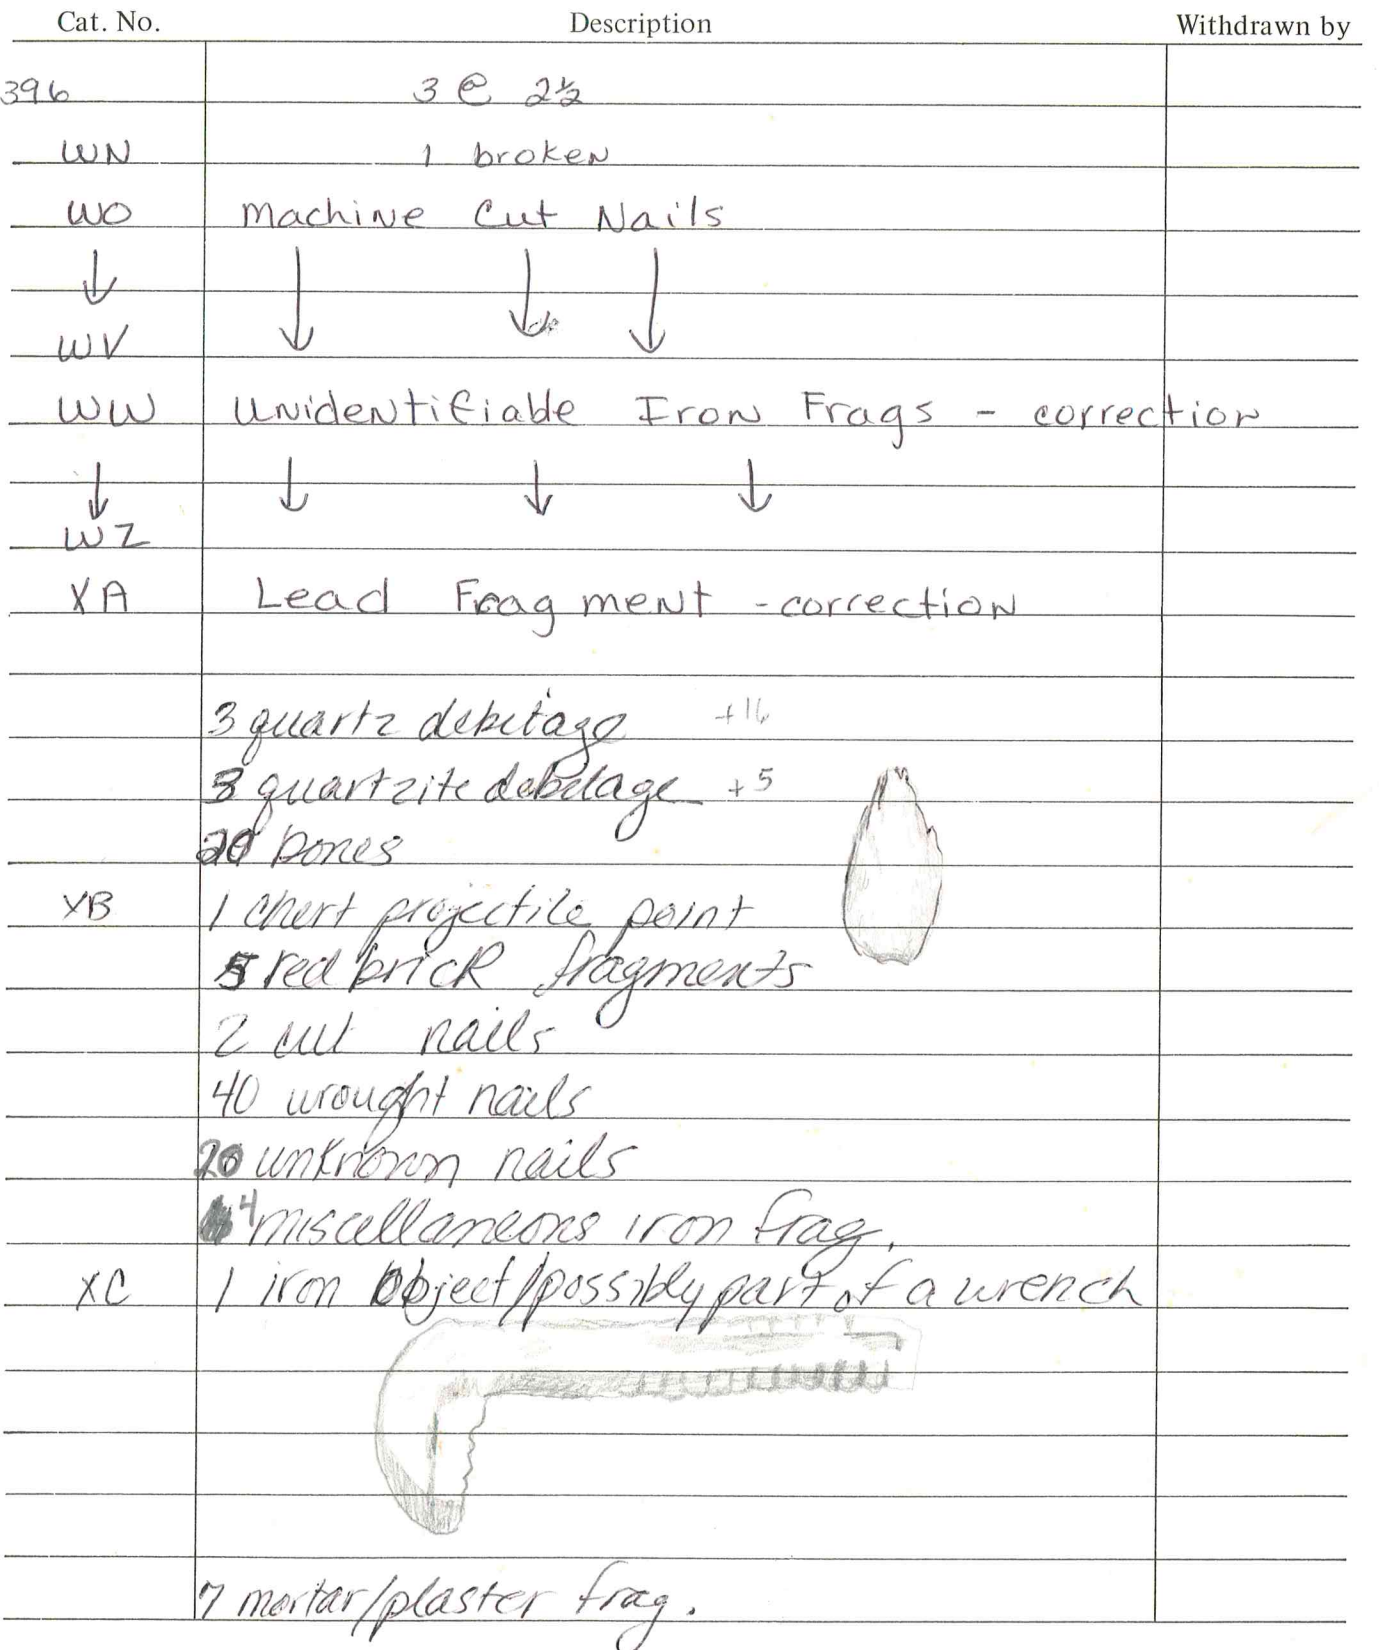 Cat. No. Description Withdrawn by
396 3 @ 2½
WN 1 broken
WO Machine Cut Nails
↓ ↓ ↓ ↓
WV
WW Unidentifiable Iron Frags - correction
↓ ↓ ↓ ↓
WZ
XA Lead Fragment - correction
3 quartz debitage +16
3 quartzite debitage +5
20 bones
XB 1 chert projectile point
5 red brick fragments
2 cut nails
40 wrought nails
20 unknown nails
4 miscellaneous iron frag.
XC 1 iron object/possibly part of a wrench
7 mortar/plaster frag.